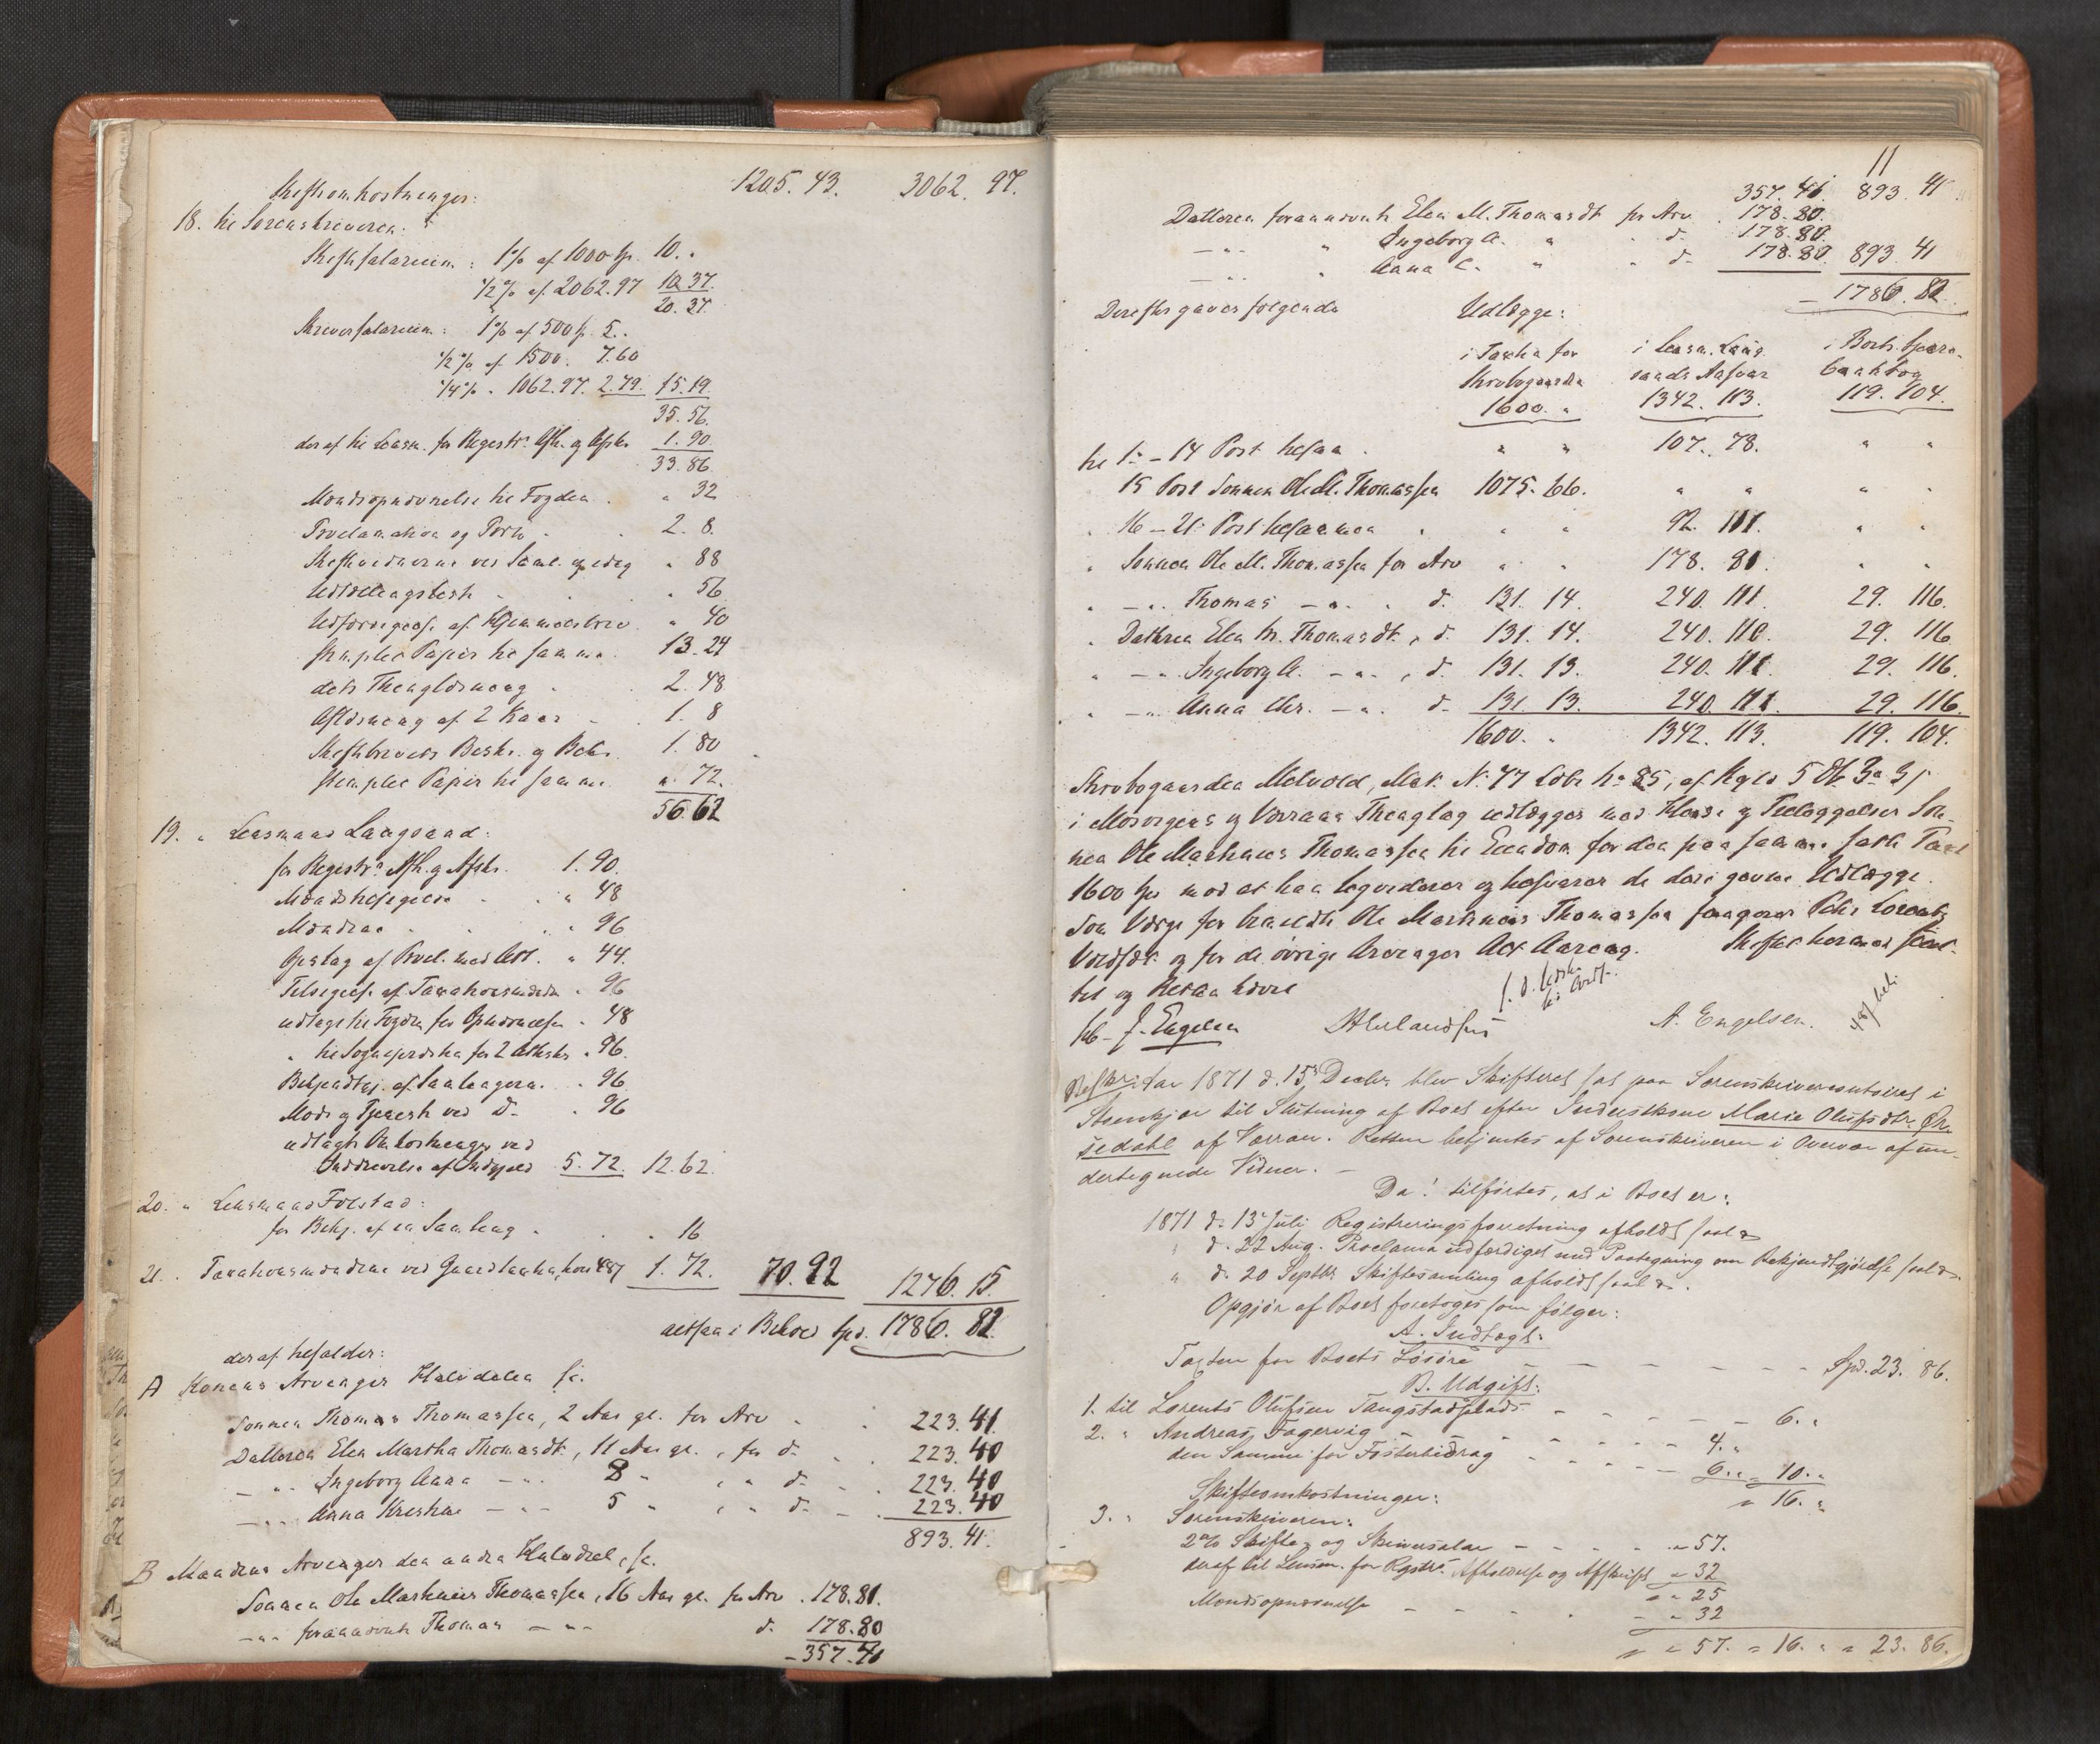 Skifteomkostninger: 1205. 43. 3062. 97.
18. til Sorenskriveren:
Skiftesalarium: 1% af 1000 Sp. 10. "
1/2% af 2062. 97 10. 37.
20. 37.
Skriversalarium: 1% af 500 Sp. 5. "
1/2% af 1500. 7. 60
1/4% " 1062. 97. 2. 79. 15. 19.
35. 56.
deraf til Lensm. for Registr. Afh. og Afskr. 1. 90.
33. 86.
Mændsopnævnelse til Fogden " 32
Proclamation og Porto 2. 8.
Skiftevidnerne ved Saml. og idag " 88
Udlodningsbest. " 56
Udfærdigelse af Hjemmelsbrev " 40
stemplet Papir til samme 13. 24
dets Thinglæsning 2. 48
Aflæsning af 2 1. 8
Skiftebrevets Beskr. og Bekr. 1. 80
stemplet Papir til samme " 72.
56. 62
19. " Lensmand Langaard:
for Registr. Afh. og Afskr. 1. 90.
Mændstilsigelse " 48
Mændene " 96
Opslag af Procl. med Att. " 44.
Tilsigelse af Taxationsmænd " 96
udlagt til Fogden for Opnævnelsen " 48
" til Sognepresten for 2 Attester " 96.
Bekjendtgj. af Samlingerne " 96
Møde og Tjeneste ved D. " 96
udlagte Omkostninger ved
Inddrivelse af Indgjæld 5. 72. 12. 62.
20. " Lensmand Folstad:
for Bekj. af en Samling " 16
21. " Taxationsmændene ved Gaardtaxten, hver 1. 72. 70. 92 1276. 15.
altsaa i Behold Spd. 1786. 82.
deraf tilfalder:
A Konens Arvinger Halvdelen s.:
Sønnen Thomas Thomassen, 2 Aar gl. for Arv 223. 41.
Datteren Elen Martha Thomasdt., 11 Aar gl. " for d. 223. 40
- " - Ingeborg Anna - " - 8 " " " d. 223. 40
- " - Anna Kirstine - " - 5 " " " d. 223. 40
893. 41.
B Mandens Arvinger den andre Halvdel, s.:
Sønnen Ole Martinus Thomassen, 16 Aar gl. for Arv 178. 81.
- " - forannævnte Thomas - " - d. 178. 80
357. 41
11
357. 41. 893. 41.
Datteren forannævnte Elen M. Thomasdt. for Arv 178. 80.
- " - " Ingeborg A. " " d. 178. 80.
- " - " Anna C. " " d. 178. 80. 893. 41
1786. 82.
Derefter gaves følgende Udlægge:
i Taxten for i Lensm. Laug- i Boets Spare-
Skrobogaarden aards Ansvar bankbog
1600. " 1342. 113. 119. 104.
til 1ste - 14 Post tilsaa " " 107. 78. " "
15 Post Sønnen Ole M. Thomassen 1075. 66. " " " "
" 16 - 21 Post tilsammen " " 92. 111. " "
" Sønnen Ole M. Thomassen for Arv " " 178. 81. " "
" - " - Thomas - " - " d. 131. 14. 240. 111. 29. 116.
" Datteren Elen M. Thomasdt. " d. 131. 14. 240. 110. 29. 116
" - " - Ingeborg A. - " - " d. 131. 13. 240. 111. 29. 116.
" - " - Anna Chr. - " - d. 131. 13. 240. 111. 29. 116.
1600. " 1342. 113. 119. 104.
Skrobogaarden Melvold, Mat. No. 77 Løbe No. 85, af Skyld 5 Ort 3 s
i Mosvigens og Værrans Thinglag udlægges med Huse og Tilleggelser Søn-
nen Ole Martinus Thomassen til Eiendom for den paa samme satte Taxt
1600 Spd mod at han liqviderer og tilsvarer de deri gjevne Udlægge.
Som Værge for Ole Martinus Thomassen fungerer Peter Lorents
og for de øvrige Arvinger Alex Aarning. Skiftet hermed slut-
tet og Retten hævet
J. Engelsen A. Engelsen.
Beskr. Aar 1871 d. 15de Decbr. blev Skifteret sat paa Sorenskrivercontoiret i
Stenkjær til Slutning af Boet efter Inderstkone Maria Olufsdtr. Øk-
sedahl af Værran. Retten betjentes af Sorenskriveren i Overvær af un-
dertegnede Vidner. -
Da! tilførtes, at i Boet er:
1871 d. 13 Juli Registreringsforretning afholdt saal.
" d. 22 Aug. Proclama udfærdiget med Paategning om Bekjendtgjørelse saal.
" d. 20 Septbr. Skiftesamling afholdt saal.
Opgjør af Boet foretoges som følger:
A. Indtægt:
Taxten for Boets Løsøre - - - - - - Spd. 23. 86.
B. Udgift:
1. til Lorents Olufsen Tangstadplads - - - - - 6. "
2. " Andreas Fagervig - - - - - - 4. "
den Samme for Fosterbidrag - - - - - 6. " = 10. "
Skifteomkostninger: " 16. "
3. " Sorenskriveren:
2% Skifte- og Skriversalar - - - - " 57.
deraf til Lensm. for Regstr. Afholdelse og Afskrift " 32
" " 25
Mændsopnævnelse - - - - - " 32
" " 57. = 16. " = 23. 86.